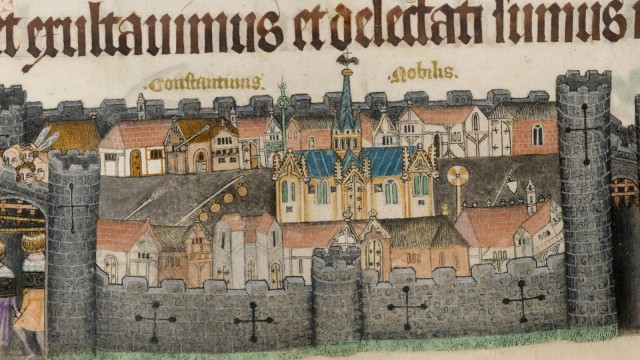 et exultauimus et delectati sumus
Constantinus. Nobilis.